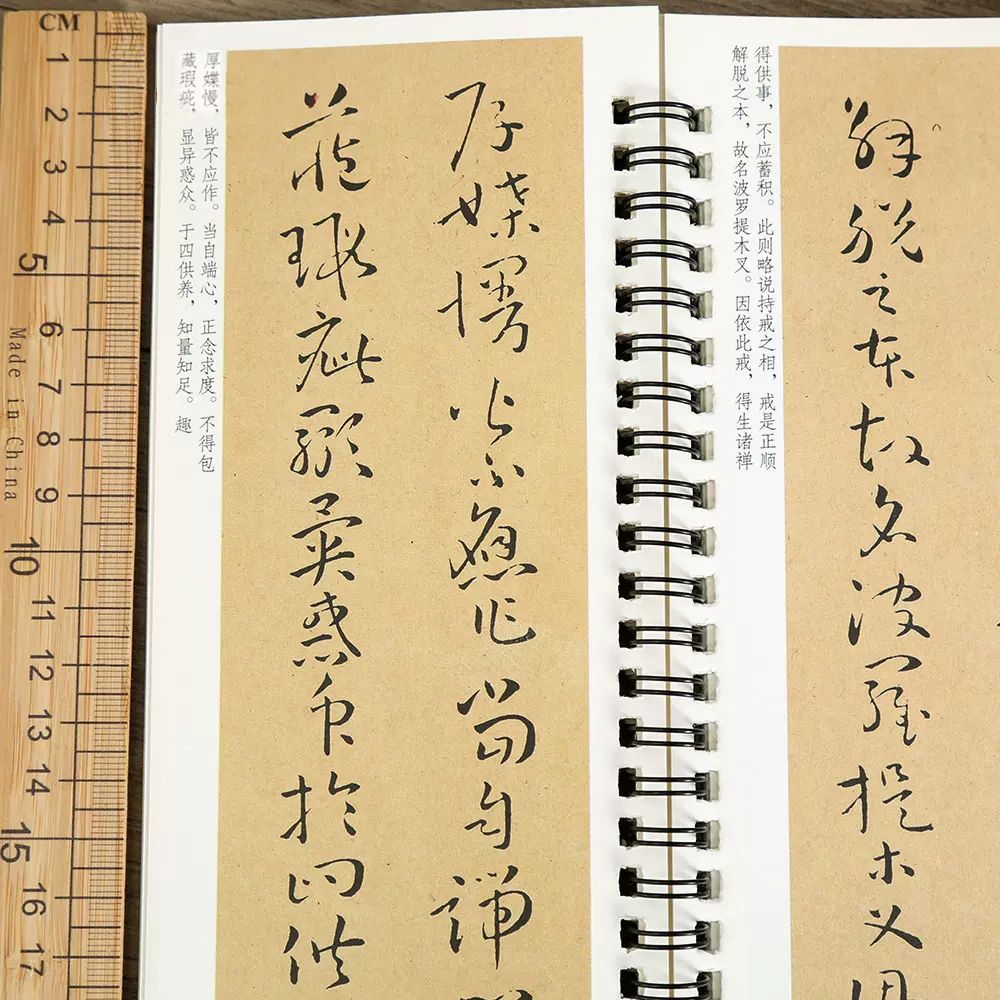 CM
1
2
3
4
5
6
7
8
9
10
11
12
13
14
15
16
17
Made in China
厚媟慢，皆不应作。当自端心，正念求度。不得包
藏瑕疵，显异惑众。于四供养，知量知足。趣
厚媟慢皆不應作當自端
藏瑕疵顯異惑眾於四供
得供事，不应蓄积。此则略说持戒之相，戒是正顺
解脱之本，故名波罗提木叉。因依此戒，得生诸禅
解脱之本故名波羅提木叉因